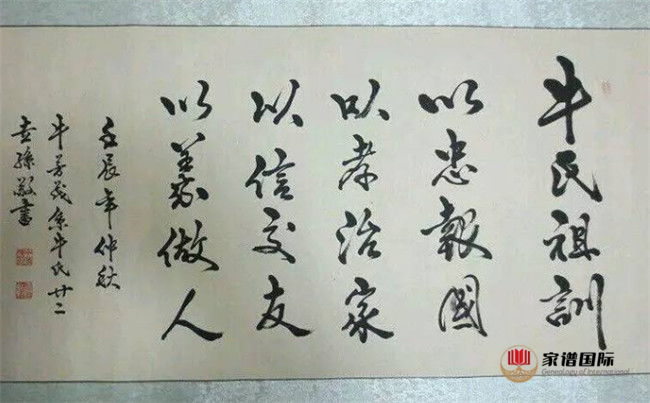 牛氏祖訓
以忠報國
以孝治家
以信交友
以義做人
壬辰年仲秋
牛芳茂系牛氏廿二
玄孫敬書
家谱国际
Genealogy of International